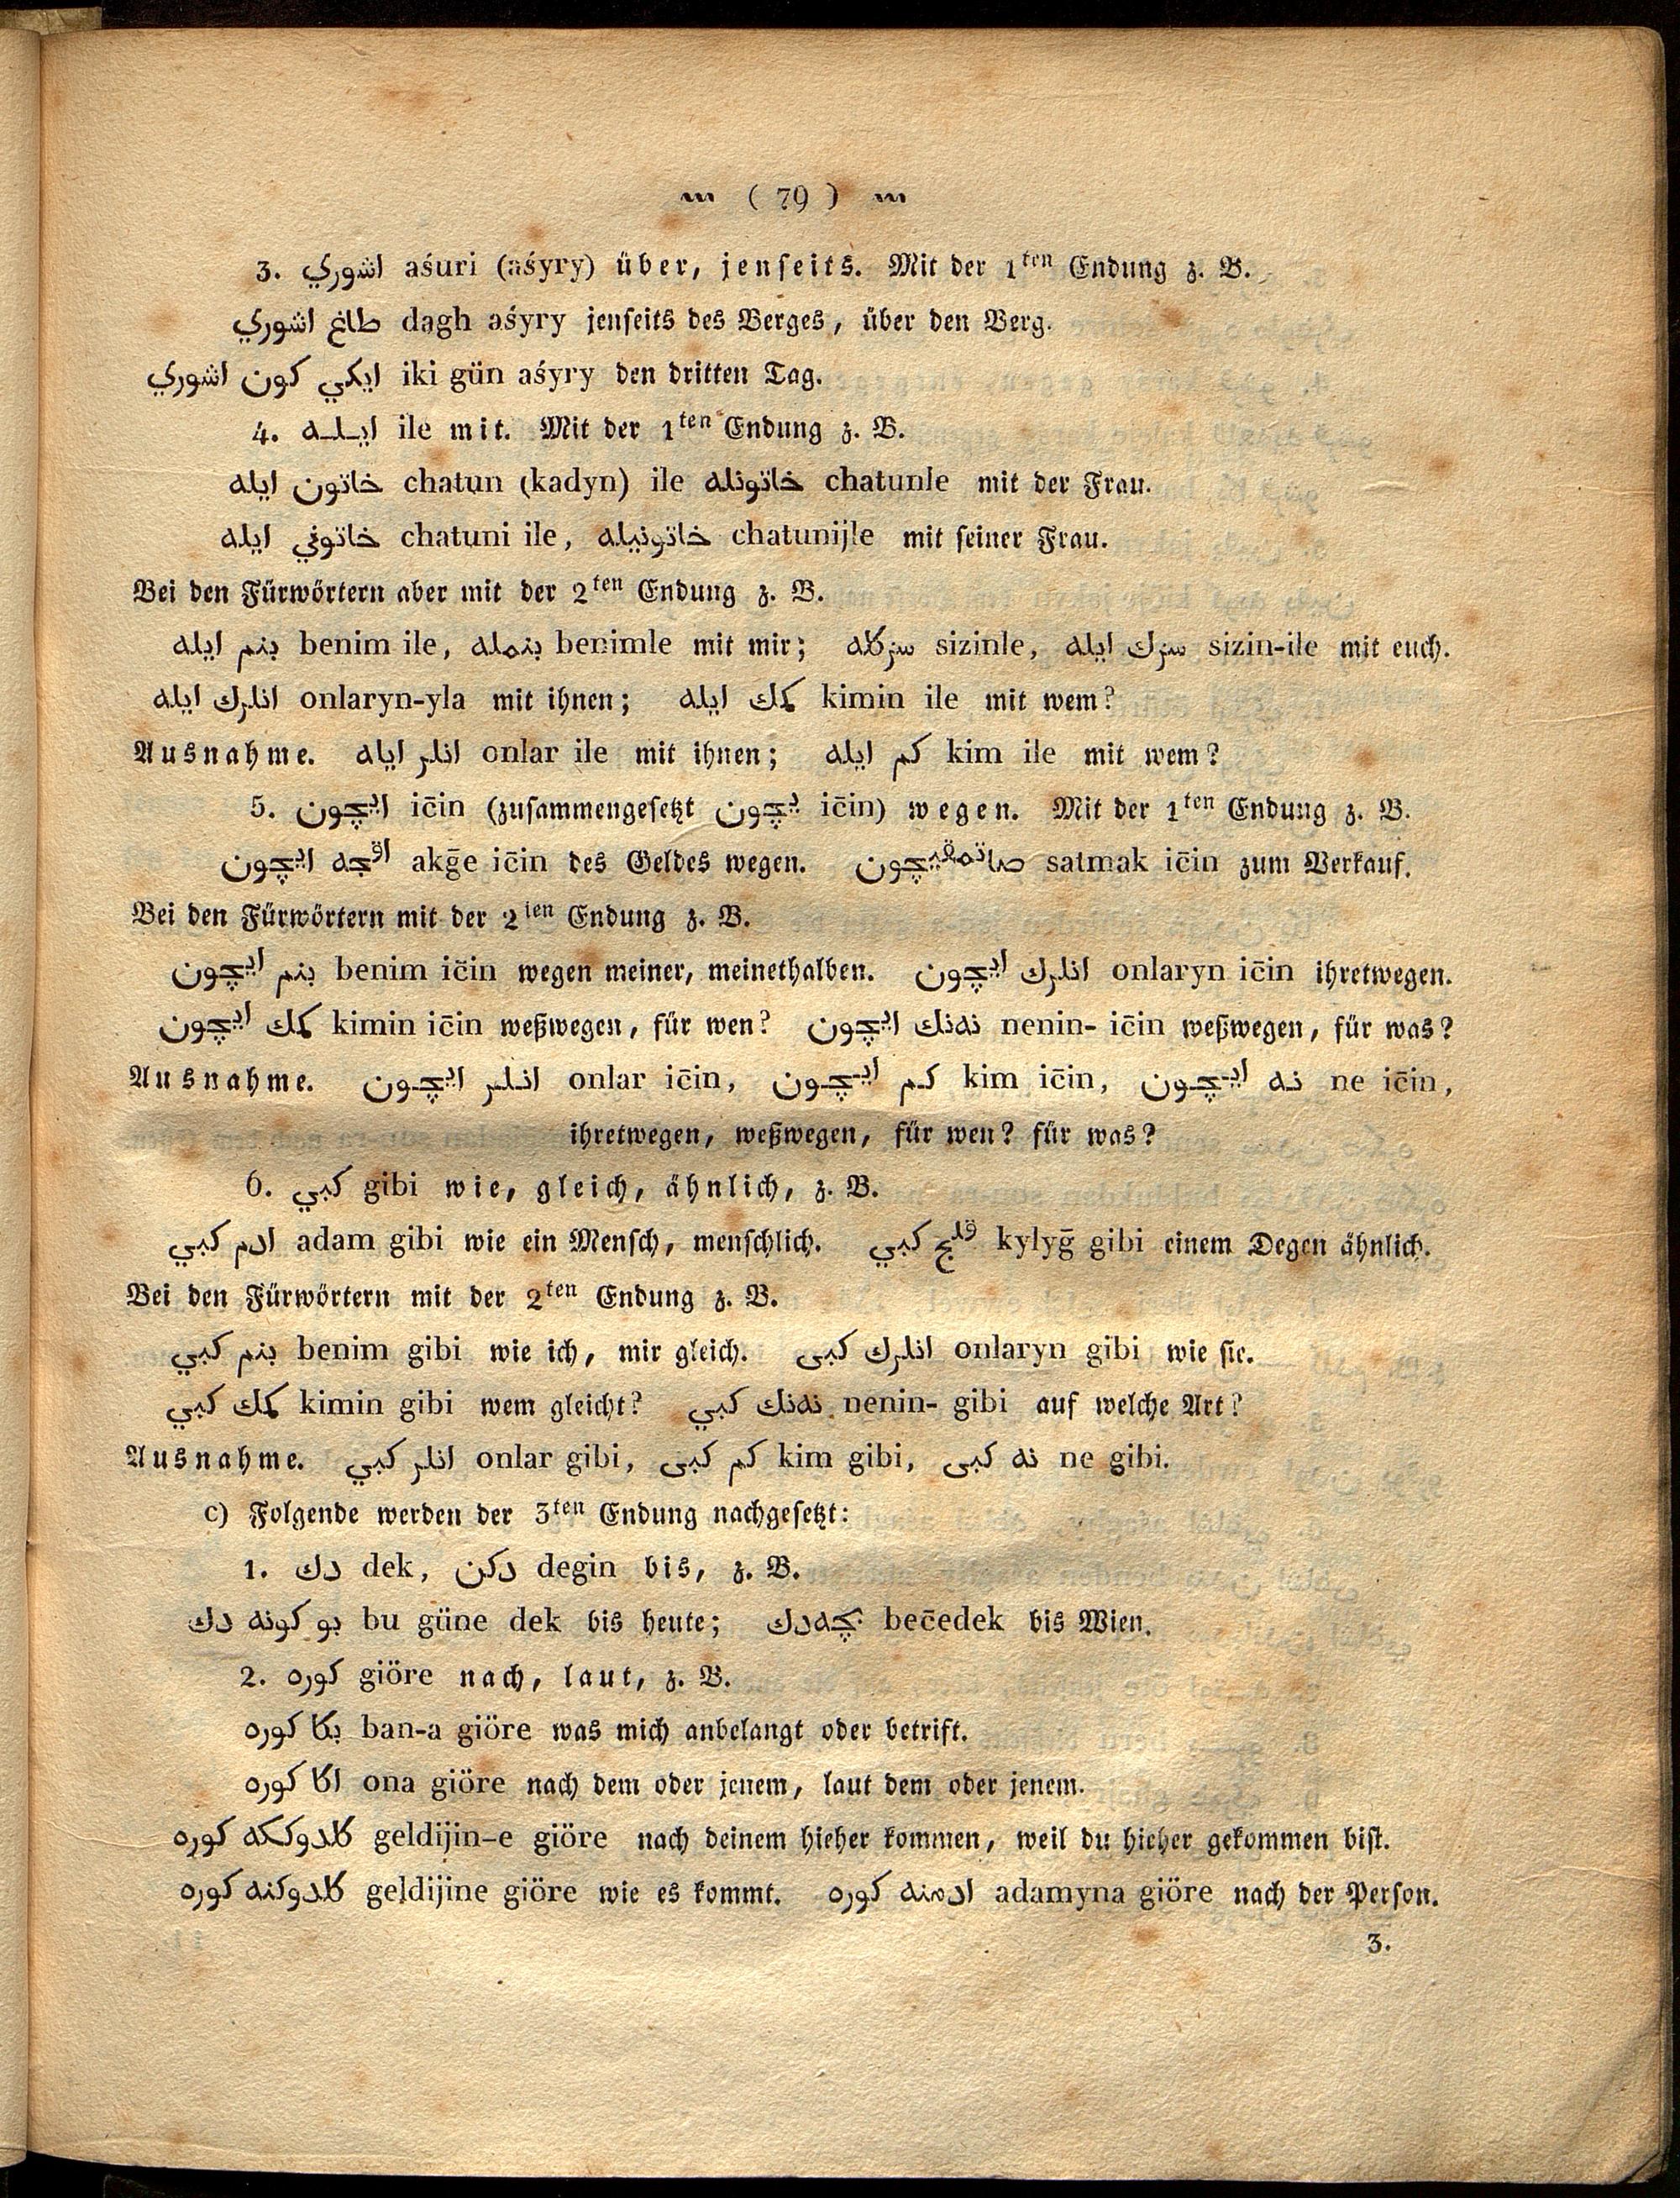 ( 79 )
3. اشوري aśuri (aśyry) über, jenseits. Mit der 1ten Endung z. B.
طاغ اشوري dagh aśyry jenseits des Berges, über den Berg.
ايكي كون اشوري iki gün aśyry den dritten Tag.
4. ايله ile mit. Mit der 1ten Endung z. B.
خاتون ايله chatun (kadyn) ile خاتونله chatunle mit der Frau.
خاتوني ايله chatuni ile, خاتونيله chatunijle mit seiner Frau.
Bei den Fürwörtern aber mit der 2ten Endung z. B.
بنم ايله benim ile, بنمله benimle mit mir; سزكله sizinle, سزك ايله sizin-ile mit euch.
انلرك ايله onlaryn-yla mit ihnen; كمك ايله kimin ile mit wem?
Ausnahme. انلر ايله onlar ile mit ihnen; كم ايله kim ile mit wem?
5. ايچون ic̄in (zusammengesetzt يچون ic̄in) wegen. Mit der 1ten Endung z. B.
اقچه ايچون akḡe ic̄in des Geldes wegen. صاتمقيچون satmak ic̄in zum Verkauf.
Bei den Fürwörtern mit der 2ten Endung z. B.
بنم ايچون benim ic̄in wegen meiner, meinethalben. انلرك ايچون onlaryn ic̄in ihretwegen.
كمك ايچون kimin ic̄in weßwegen, für wen? نهنك ايچون nenin- ic̄in weßwegen, für was?
Ausnahme. انلر ايچون onlar ic̄in, كم ايچون kim ic̄in, نه ايچون ne ic̄in,
ihretwegen, weßwegen, für wen? für was?
6. كبي gibi wie, gleich, ähnlich, z. B.
ادم كبي adam gibi wie ein Mensch, menschlich. قلج كبي kylyḡ gibi einem Degen ähnlich.
Bei den Fürwörtern mit der 2ten Endung z. B.
بنم كبي benim gibi wie ich, mir gleich. انلرك كبى onlaryn gibi wie sie.
كمك كبي kimin gibi wem gleicht? نهنك كبي nenin- gibi auf welche Art?
Ausnahme. انلر كبي onlar gibi, كم كبى kim gibi, نه كبى ne gibi.
c) Folgende werden der 3ten Endung nachgesetzt:
1. دك dek, دكن degin bis, z. B.
بو كونه دك bu güne dek bis heute; بچهدك bec̄edek bis Wien.
2. كوره giöre nach, laut, z. B.
بكا كوره ban-a giöre was mich anbelangt oder betrift.
اكا كوره ona giöre nach dem oder jenem, laut dem oder jenem.
كلدوككه كوره geldijin-e giöre nach deinem hieher kommen, weil du hieher gekommen bist.
كلدوكنه كوره geldijine giöre wie es kommt. ادمنه كوره adamyna giöre nach der Person.
3.